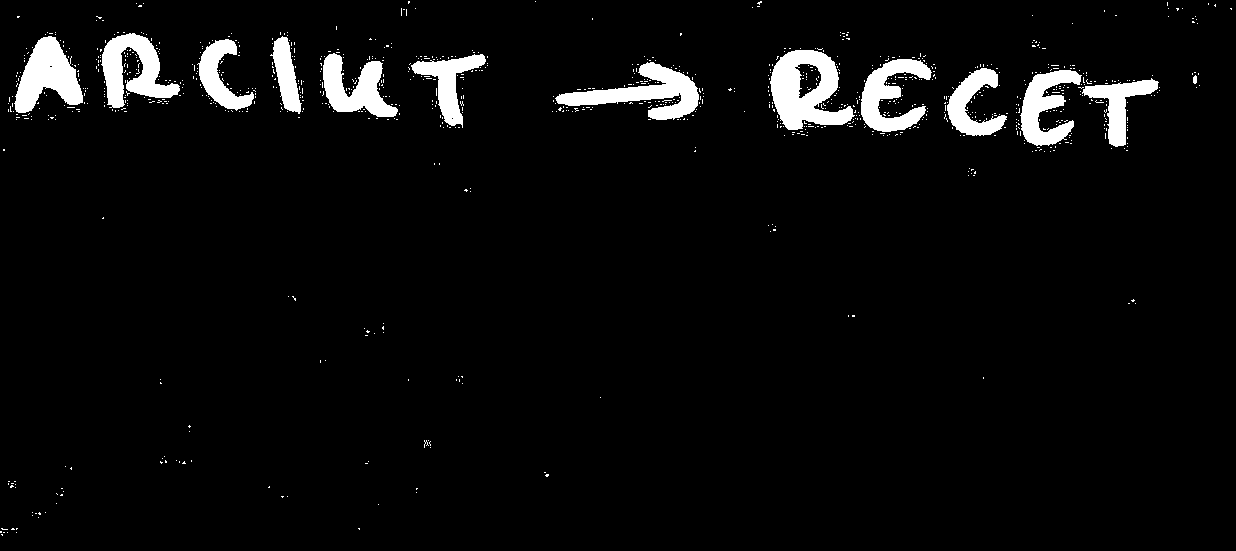 ARCIUT → RECET